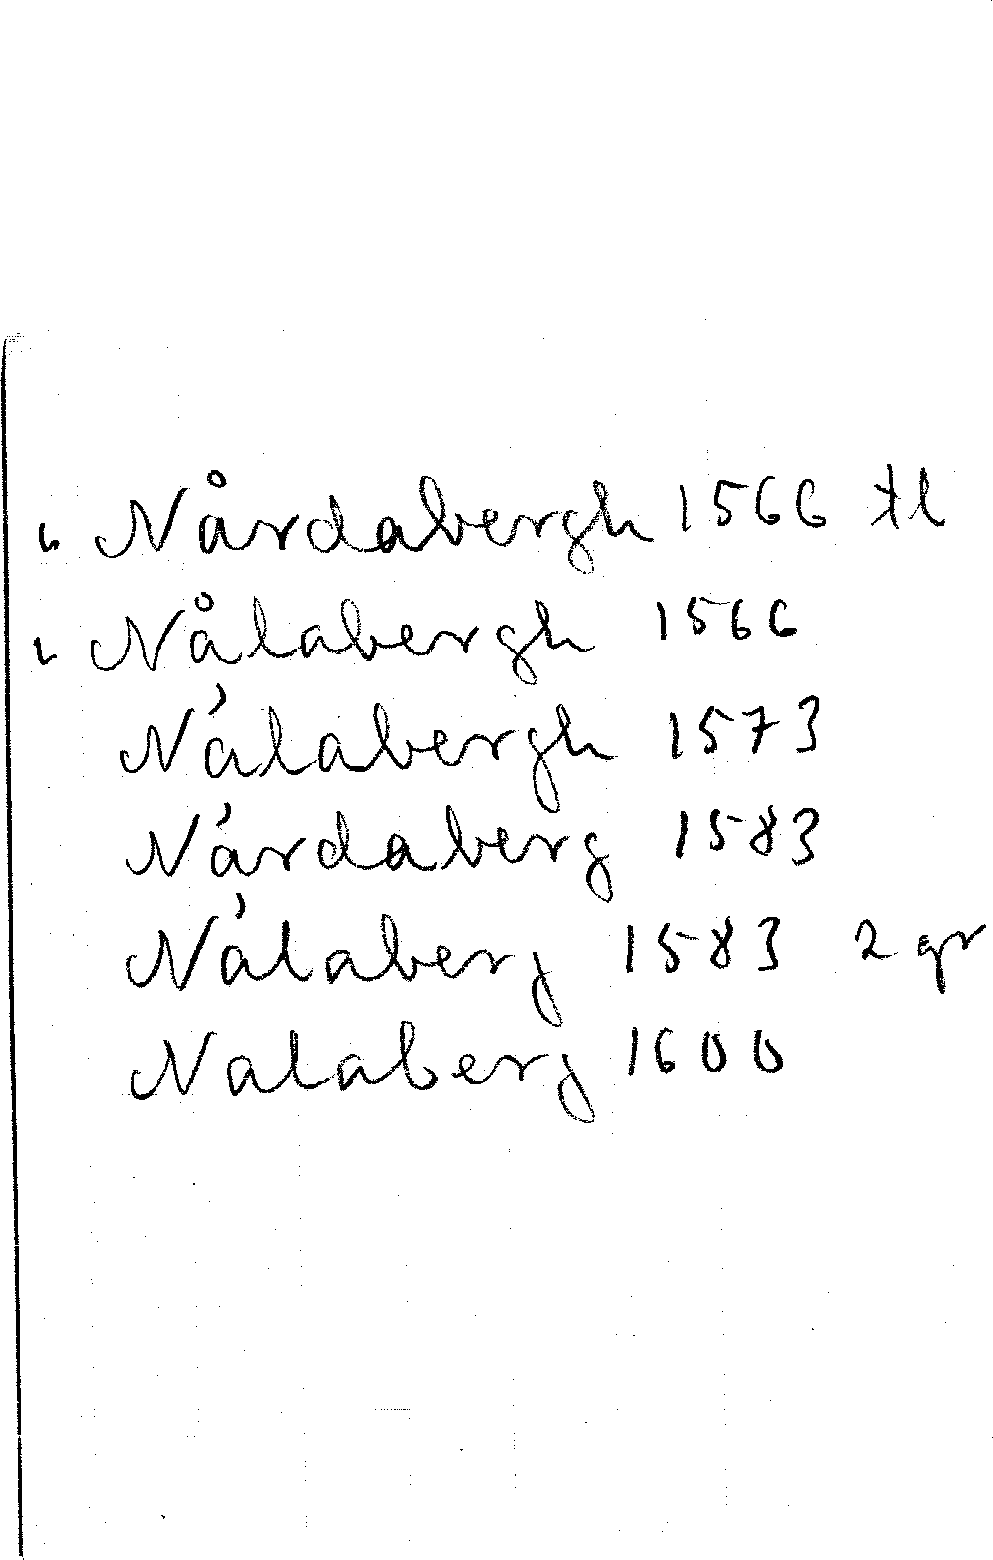 Nårdabergh 1566 tl
Nålabergh 1566
Nálabergh 1573
Nárdaberg 1583
Nálaberg 1583 2 gr
Nalaberg 1600